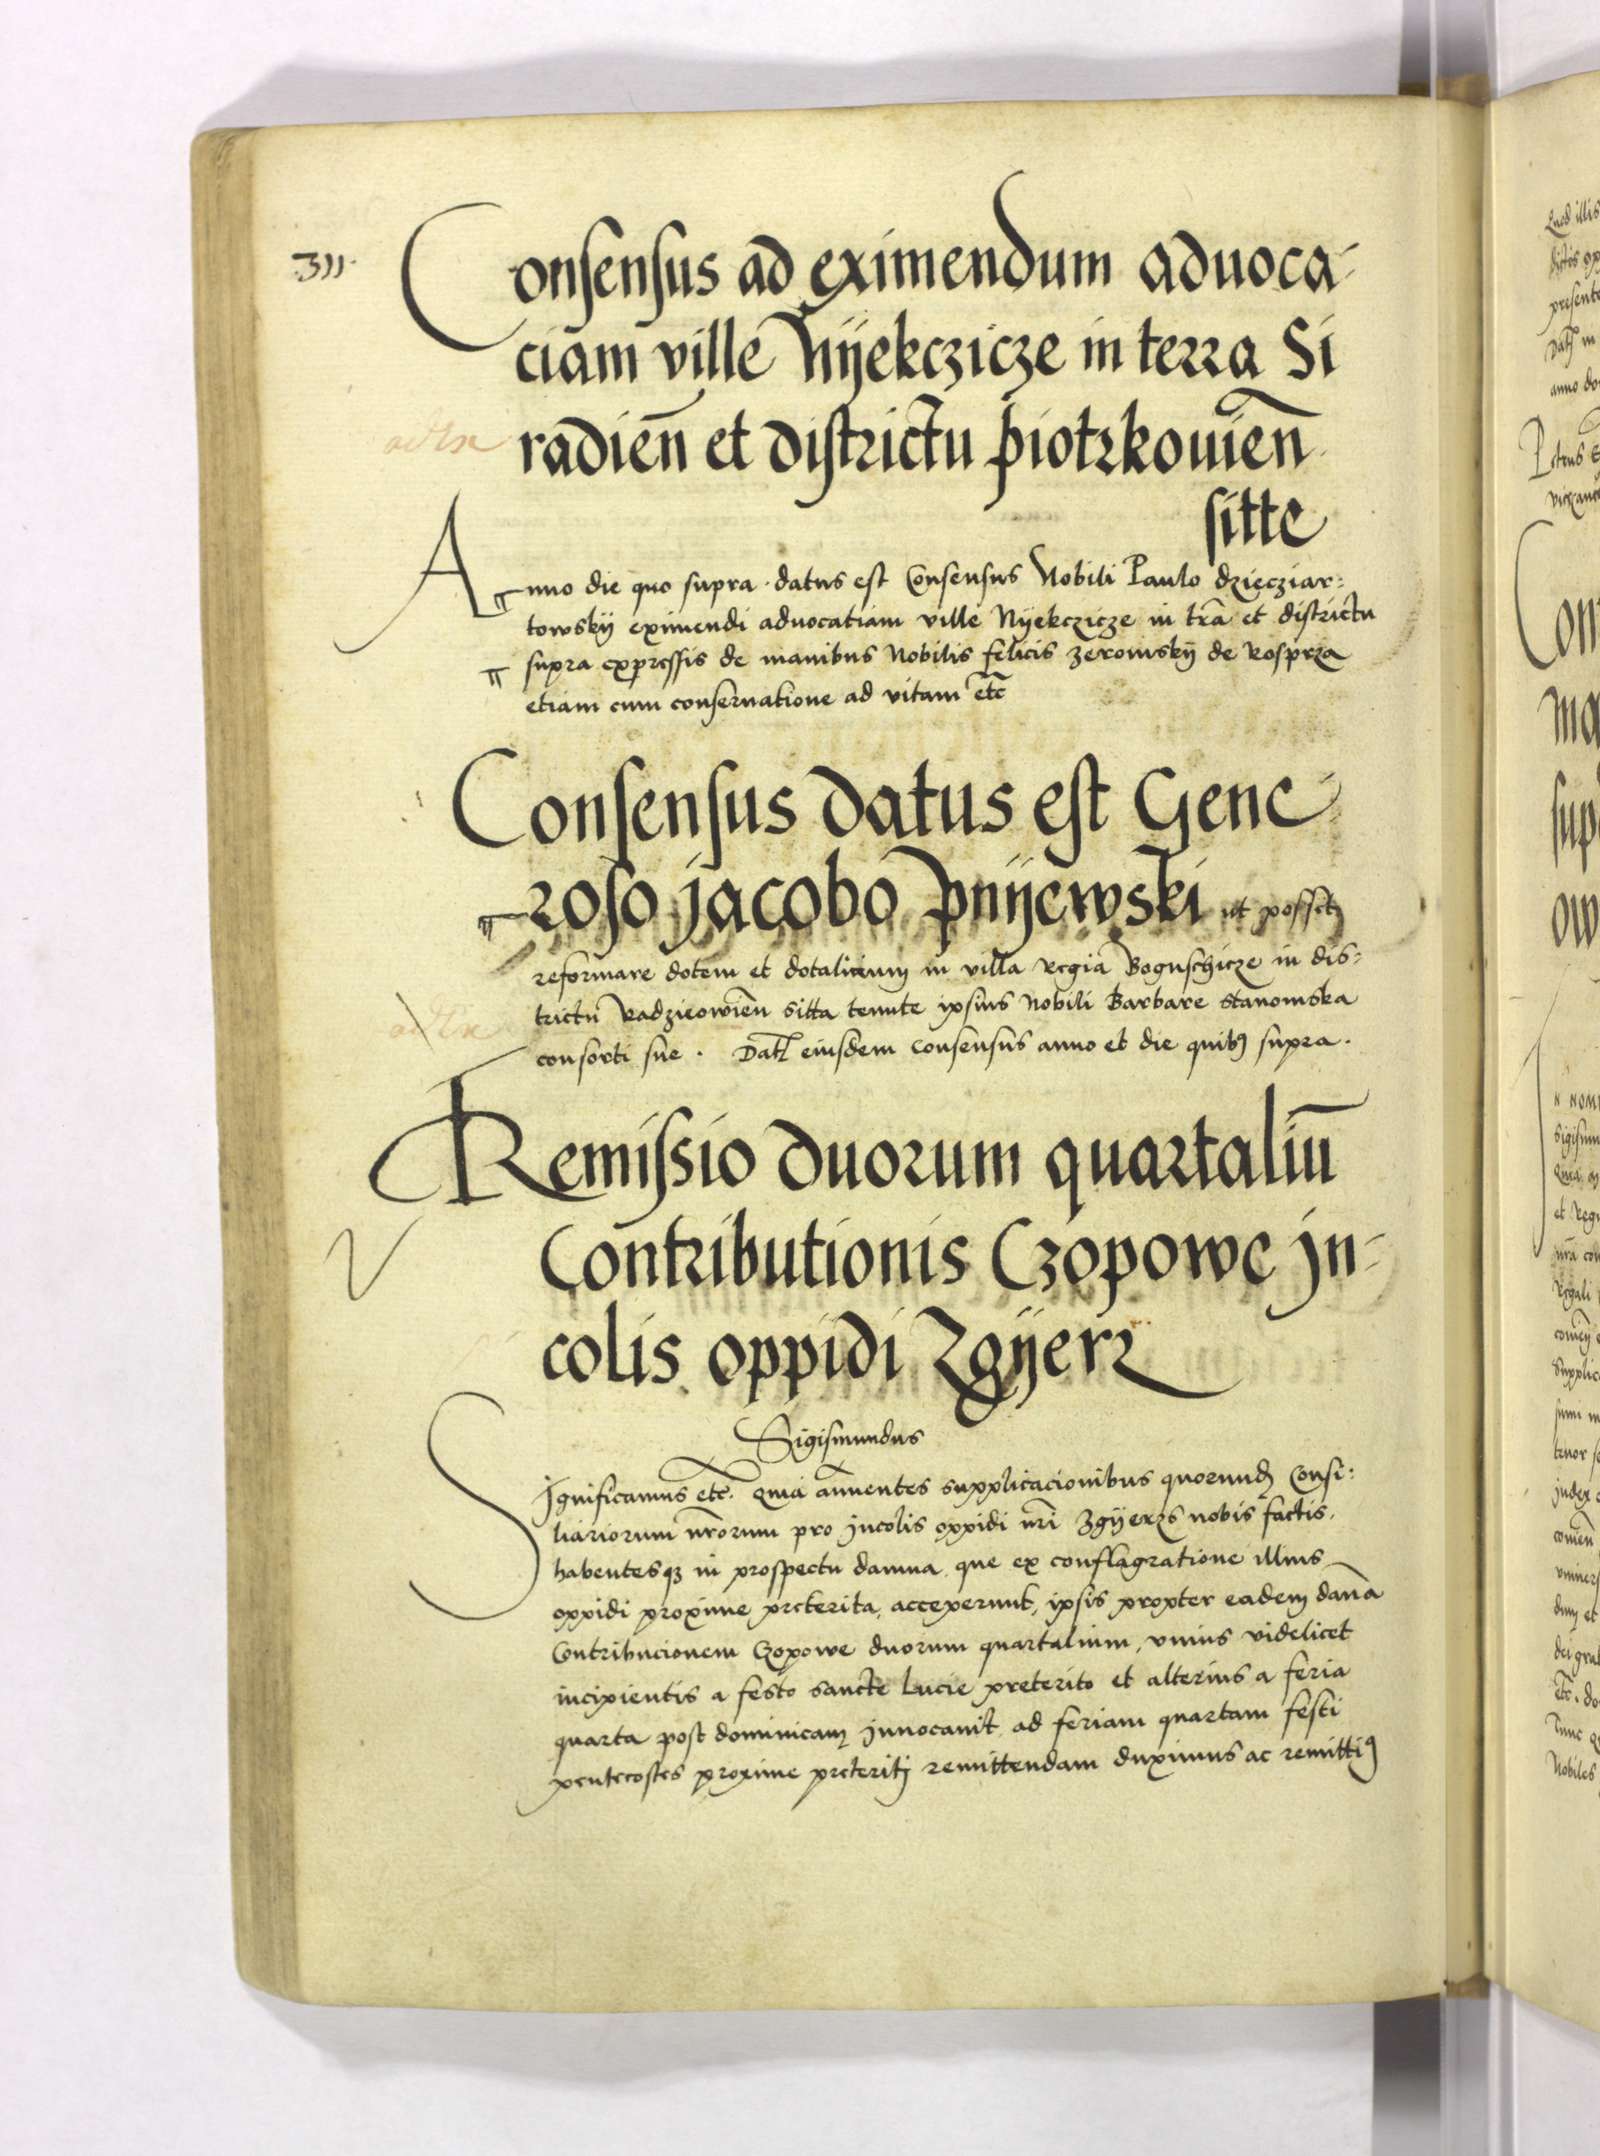 311.
Consensus ad eximendum aduoca-
ciam ville Nyekczicze in terra Si
radien̄ et districtu piotrkouien̄
sitte
Anno die quo supra. datus est Consensus Nobili Paulo dziecziar:
towskÿ eximendi aduocatiam ville Nÿekczicze in tr̄a et districtu
supra expressis de manibus Nobilis felicis zeromskÿ de Rosprza
etiam cum conseruatione ad vitam etc̄
Consensus datus est Gene
roso jacobo pnÿewski ut posset
reformare dotem et dotalicium in villa regia Boguschicze in dis:
trictu Radzieowien̄ sitta tenute ipsius Nobili Barbare stanomska
consorti sue. Dat̄ eiusdem consensus anno et die quibꝰ supra.
Remissio duorum quartaliū
Contributionis Czopowe jn-
colis oppidi Zgÿerz
Sigismundus
Significamus etc̄. Quia annuentes supplicacionibus quorundꝫ Consi:
liariorum nr̄orum pro jncolis oppidi nr̄i Zgÿerzs nobis factis.
habentesqꝫ in prospectu damna. que ex conflagratione illius
oppidi proxime preterita, acceperunt, ipsis propter eadem dan̄a
Contribucionem Czopowe duorum quartalium, vnius videlicet
incipientis a festo sancte Lucie preterito et alterius a feria
quarta post dominicam jnuocauit ad feriam quartam festi
pentecostes proxime preteritj remittendam duximus ac remittiꝰ